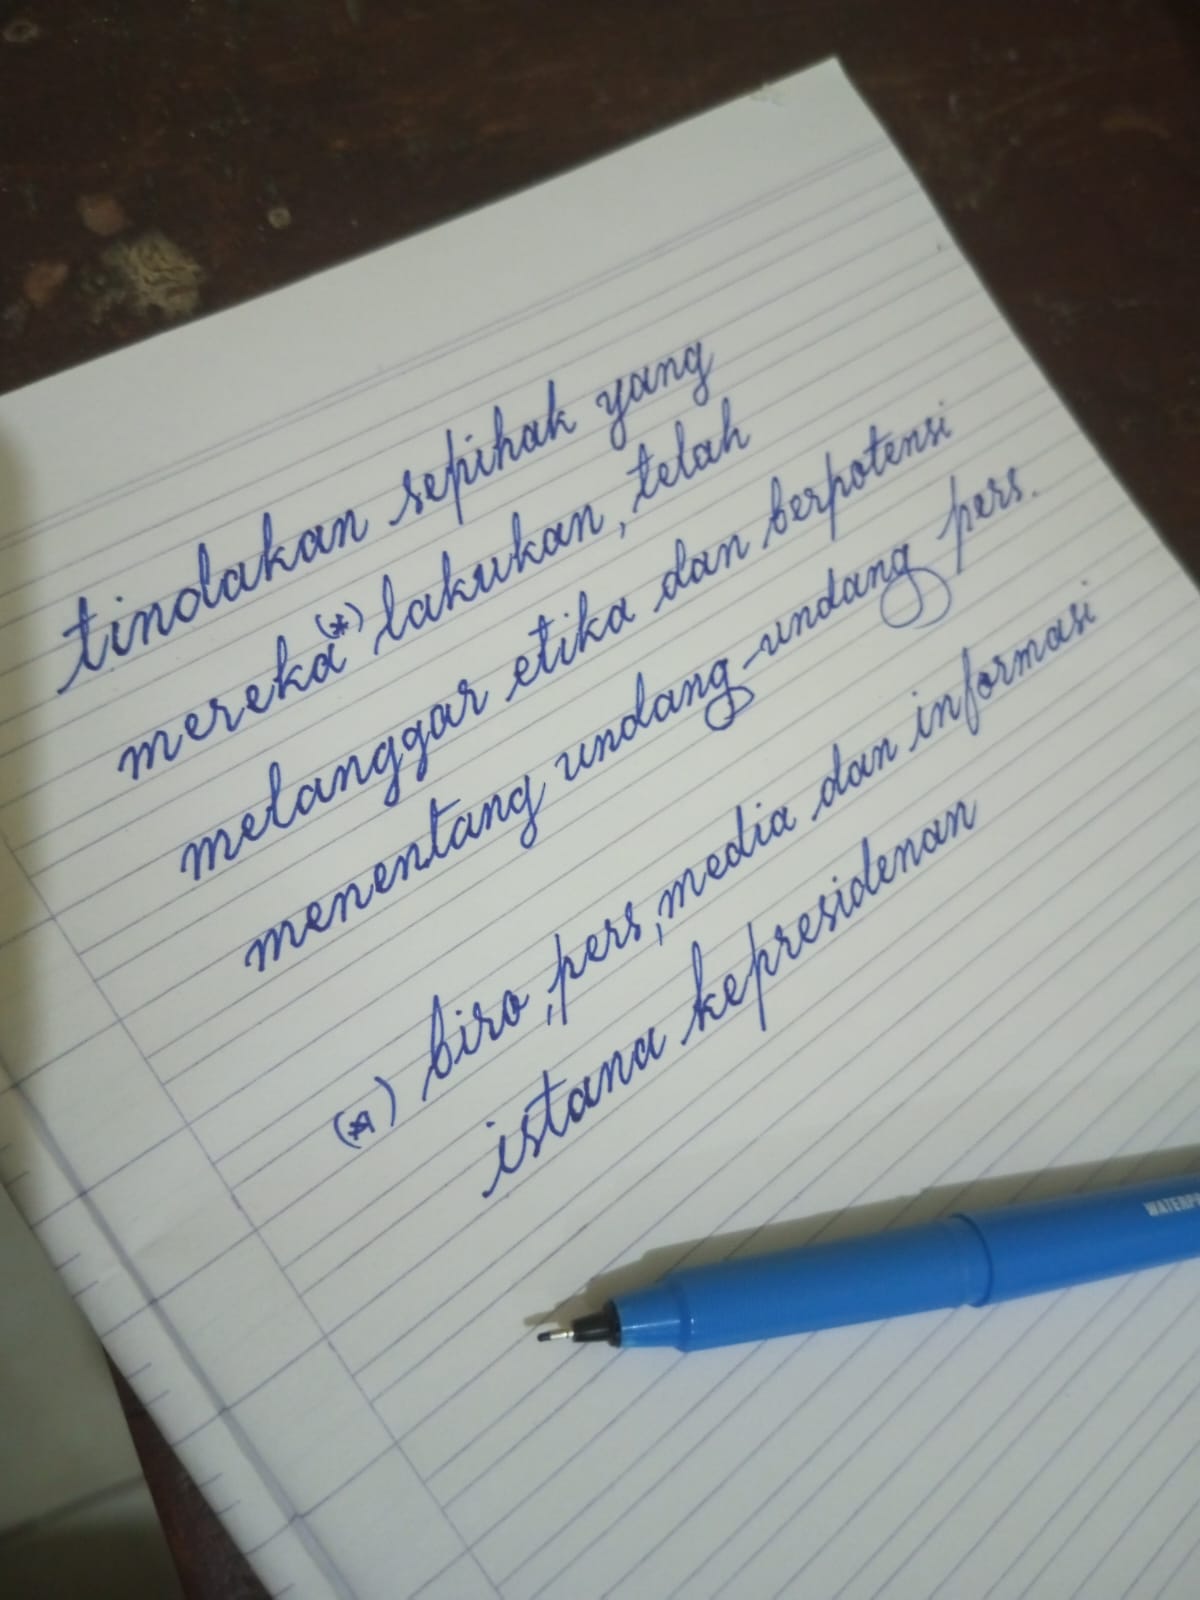 tindakan sepihak yang
mereka(*) lakukan, telah
melanggar etika dan berpotensi
menentang undang-undang pers.
(*) biro, pers, media dan informasi
istana kepresidenan